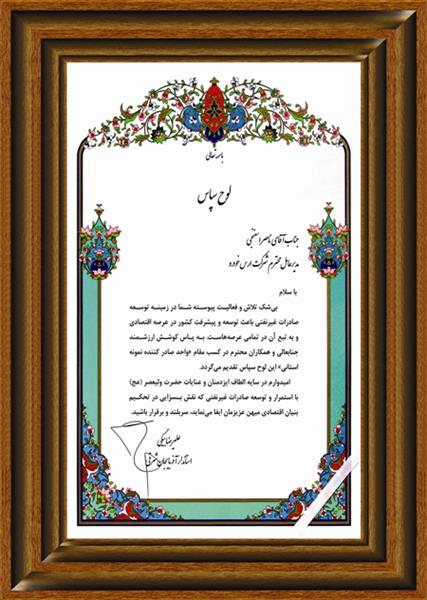 باسمه تعالی
لوح سپاس
جناب آقای ناصر اسفنجی
مدیرعامل محترم شرکت ارس خودرو
با سلام
بی‌شک تلاش و فعالیت پیوسته شما در زمینه توسعه
صادرات غیرنفتی باعث توسعه و پیشرفت کشور در عرصه اقتصادی
و به تبع آن در تمامی عرصه‌هاست. به پاس کوشش ارزشمند
جنابعالی و همکاران محترم در کسب مقام «واحد صادر کننده نمونه
استانی» این لوح سپاس تقدیم می‌گردد.
امیدوارم در سایه الطاف ایزدمنان و عنایات حضرت ولیعصر (عج)
با استمرار و توسعه صادرات غیرنفتی که نقش بسزایی در تحکیم
بنیان اقتصادی میهن عزیزمان ایفا می‌نماید، سربلند و برقرار باشید.
علیرضا بیگی
استاندار آذربایجان شرقی